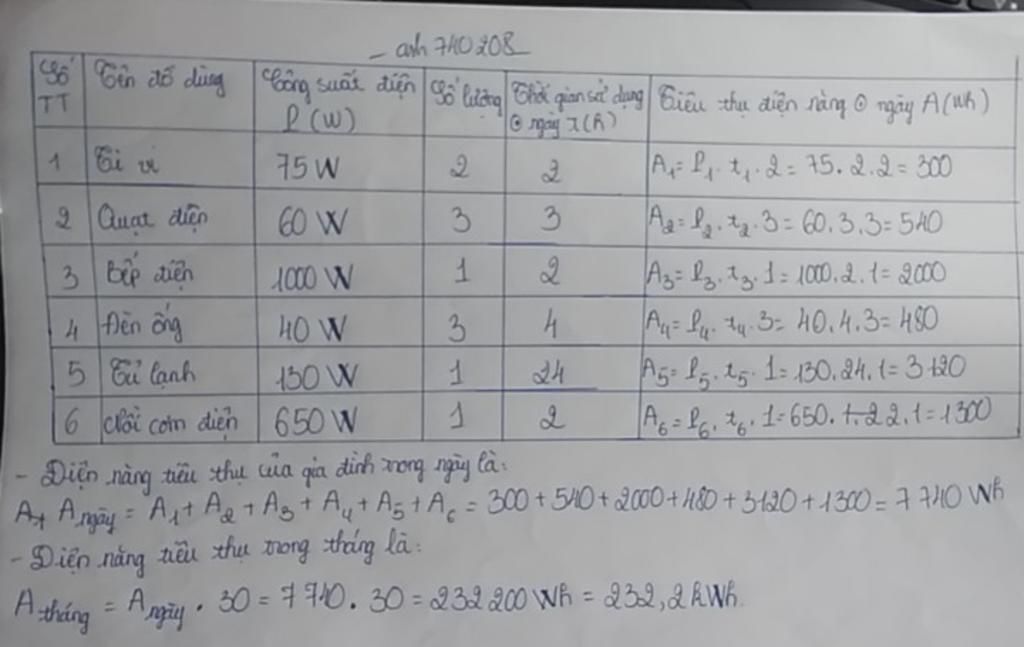 anh 740208
Số TT Tên đồ dùng Công suất điện P (W) Số lượng Thời gian sử dụng ⊙ ngày t(h) Tiêu thụ điện năng ⊙ ngày A(Wh)
1 Ti vi 75 W 2 2 A₁= P₁. t₁. 2 = 75. 2. 2 = 300
2 Quạt điện 60 W 3 3 A₂= P₂. t₂. 3 = 60. 3. 3= 540
3 Bếp điện 1000 W 1 2 A₃= P₃. t₃. 1 = 1000. 2. 1 = 2000
4 Đèn ống 40 W 3 4 A₄= P₄. t₄. 3= 40. 4. 3= 480
5 Tủ lạnh 130 W 1 24 A₅= P₅. t₅. 1= 130. 24. 1= 3120
6 Nồi cơm điện 650 W 1 2 A₆= P₆. t₆. 1= 650. 2. 1= 1300
- Điện năng tiêu thụ của gia đình trong ngày là:
A ngày = A₁ + A₂ + A₃ + A₄ + A₅ + A₆ = 300 + 540 + 2000 + 480 + 3120 + 1300 = 7740 Wh
- Điện năng tiêu thụ trong tháng là:
A tháng = A ngày . 30 = 7740. 30 = 232 200 Wh = 232,2 kWh.